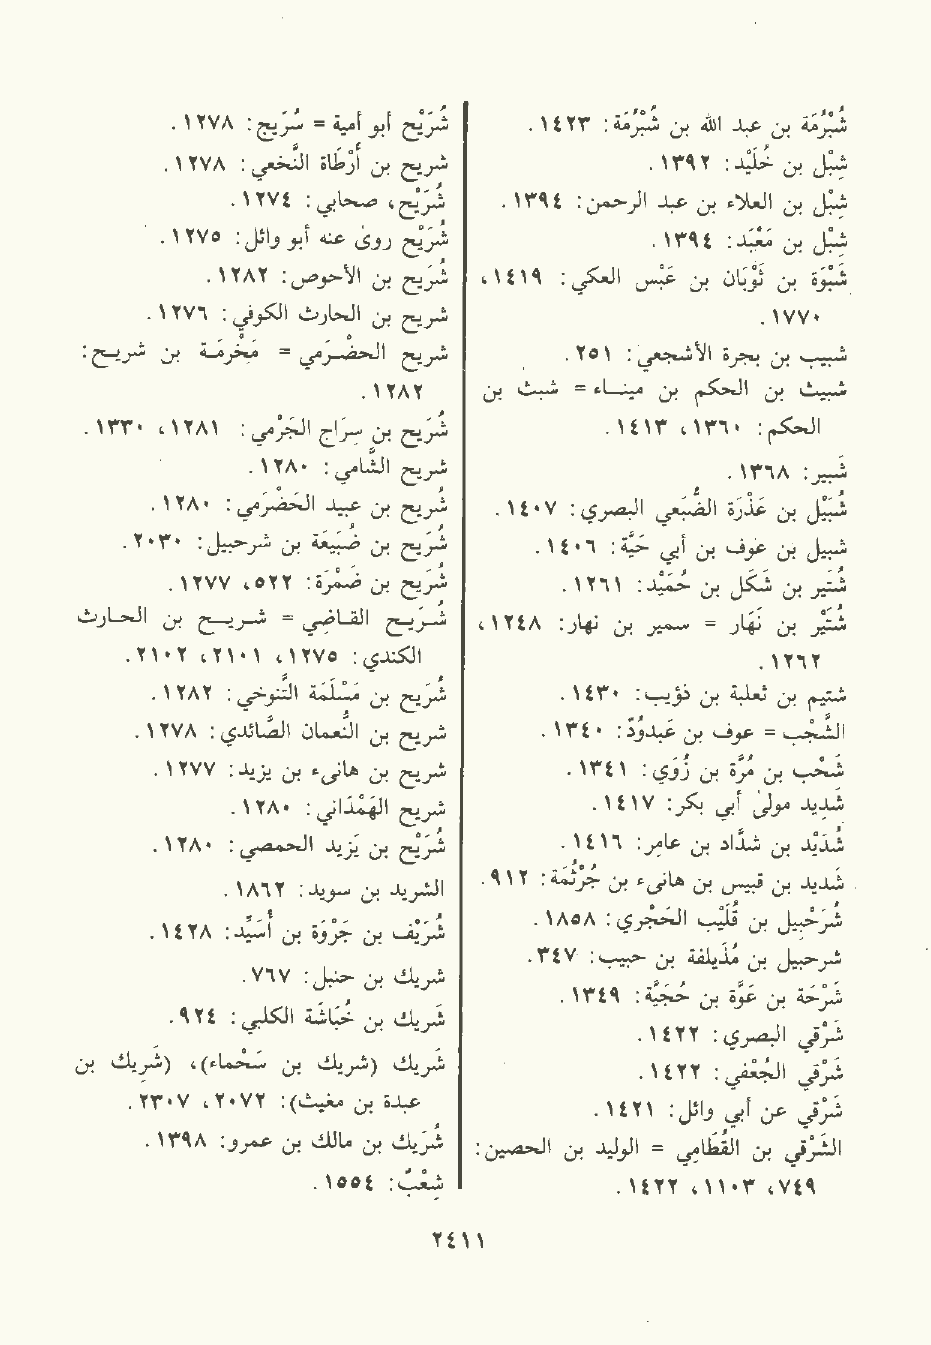 شُبْرُمَة بن عبد الله بن شُبْرُمَة: ١٤٢٣.
شِبْل بن خُلَيْد: ١٣٩٢.
شِبْل بن العلاء بن عبد الرحمن: ١٣٩٤.
شِبْل بن مَعْبَد: ١٣٩٤.
شَبْوَة بن ثَوْبَان بن عَبْس العكي: ١٤١٩،
١٧٧٠.
شبيب بن بجرة الأشجعي: ٢٥١.
شبيث بن الحكم بن ميناء = شبث بن
الحكم: ١٣٦٠، ١٤١٣.
شَبير: ١٣٦٨.
شُبَيْل بن عَذْرَة الضُّبَعي البصري: ١٤٠٧.
شبيل بن عوف بن أبي حَيَّة: ١٤٠٦.
شُتَير بن شَكَل بن حُمَيْد: ١٢٦١.
شُتَيْر بن نَهَار = سمير بن نهار: ١٢٤٨،
١٢٦٢.
شتيم بن ثعلبة بن ذؤيب: ١٤٣٠.
الشَّجْب = عوف بن عَبدوُدّ: ١٣٤٠.
شَخْب بن مُرَّة بن زُوَي: ١٣٤١.
شَدِيد مولىٰ أبي بكر: ١٤١٧.
شُدَيْد بن شدَّاد بن عامر: ١٤١٦.
شَديد بن قيس بن هانىء بن جُرْثُمَة: ٩١٢.
شُرَحْبِيل بن قُلَيْب الحَجْري: ١٨٥٨.
شرحبيل بن مُذَيلفة بن حبيب: ٣٤٧.
شَرْحَة بن عَوَّة بن حُجَيَّة: ١٣٤٩.
شَرْقي البصري: ١٤٢٢.
شَرْقي الجُعْفي: ١٤٢٢.
شَرْقي عن أبي وائل: ١٤٢١.
الشَّرْقي بن القُطَامِي = الوليد بن الحصين:
٧٤٩، ١١٠٣، ١٤٢٢.
شُرَيْح أبو أمية = سُرَيج: ١٢٧٨.
شريح بن أَرْطَاة النَّخعي: ١٢٧٨.
شُرَيْح، صحابي: ١٢٧٤.
شُرَيْح روىٰ عنه أبو وائل: ١٢٧٥.
شُرَيح بن الأحوص: ١٢٨٢.
شريح بن الحارث الكوفي: ١٢٧٦.
شريح الحضْرَمي = مَخْرَمَة بن شريح:
١٢٨٢.
شُرَيح بن سِرَاج الجَرْمي: ١٢٨١، ١٣٣٠.
شريح الشَّامي: ١٢٨٠.
شُريح بن عبيد الحَضْرَمي: ١٢٨٠.
شُرَيْح بن ضُبَيعَة بن شرحبيل: ٢٠٣٠.
شُرَيْح بن ضَمْرَة: ٥٢٢، ١٢٧٧.
شُرَيح القاضِي = شريح بن الحارث
الكندي: ١٢٧٥، ٢١٠١، ٢١٠٢.
شُرَيح بن مَسْلَمَة التَّنوخي: ١٢٨٢.
شريح بن النُّعمان الصَّائدي: ١٢٧٨.
شريح بن هانىء بن يزيد: ١٢٧٧.
شريح الهَمْدَاني: ١٢٨٠.
شُرَيْح بن يَزيد الحمصي: ١٢٨٠.
الشريد بن سويد: ١٨٦٢.
شُرَيْف بن جَرْوَة بن أُسَيِّد: ١٤٢٨.
شريك بن حنبل: ٧٦٧.
شَريك بن خُبَاشَة الكلبي: ٩٢٤.
شَريك (شريك بن سَحْماء)، (شَرِيك بن
عبدة بن مغيث): ٢٠٧٢، ٢٣٠٧.
شُرَيك بن مالك بن عمرو: ١٣٩٨.
شِعْبٌ: ١٥٥٤.
٢٤١١